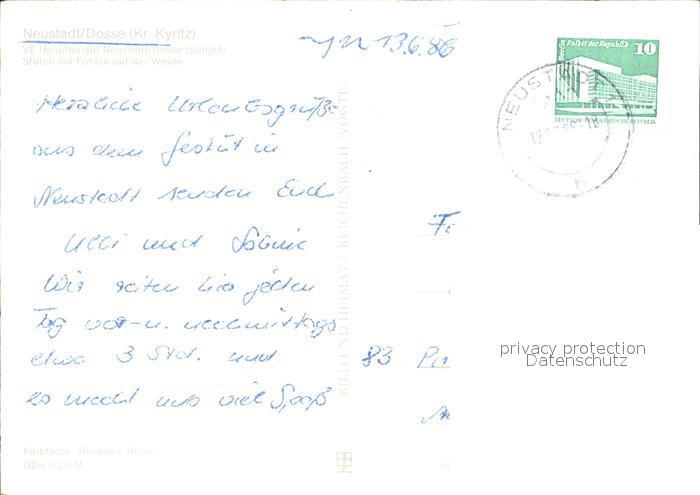 Neustadt/Dosse (Kr. Kyritz)
VE Hauptgestüt Neustadt/Dosse (Schloß)
Stuten mit Fohlen auf der Weide
13.6.86
Herzliche Urlaubsgrüße
aus dem Gestüt in
Neustadt senden Euch
Ulli und Sabine
Wir reiten hier jeden
Tag vor- u. nachmittags
etwa 3 Std. und
es macht uns viel Spaß
Farbfotos: Riederer, Berlin
DDR 0,20 M
BILD UND HEIMAT · REICHENBACH (VOGTL)
Berlin Palast der Republik 10
DEUTSCHE DEMOKRATISCHE REPUBLIK
NEUSTADT
h
83
privacy protection
Datenschutz